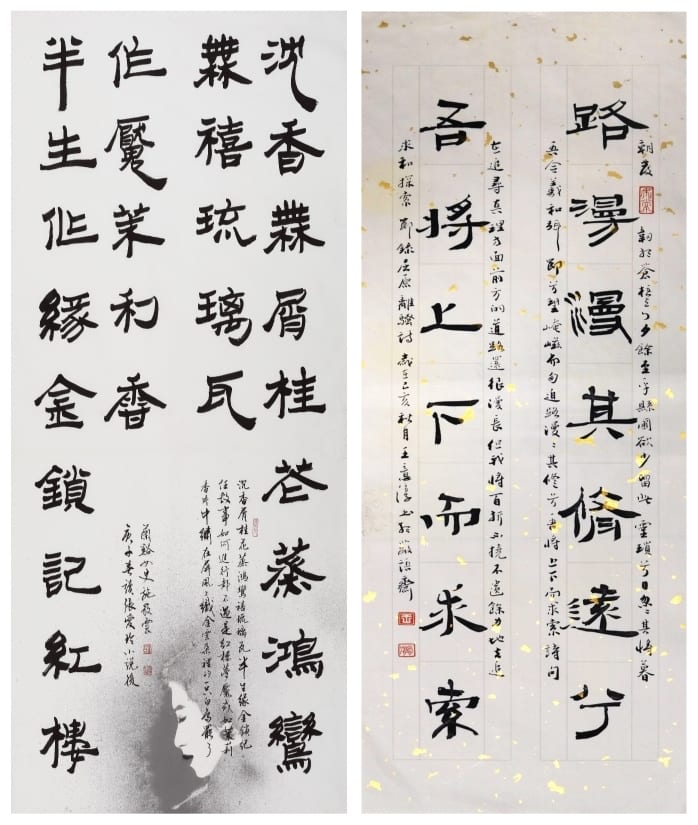 沈香屑桂花蒸鴻鸞
禧琉璃瓦
魘茉利香
半生緣金鎖記紅樓
沉香屑桂花蒸鴻鸞禧琉璃瓦半生緣金鎖紀
任故事如何進行都不過是紅樓夢魘或如茉莉
香片中繡在屏風上織金雲朵裡的一只白鳥罷了
蘭谿女史施雲
庚子春讀張愛玲小說後
朝發
路漫漫其脩遠兮
朝於蒼梧兮夕餘至乎縣圃欲少留此靈瑣兮日忽忽其將暮
吾令羲和弭節兮望崦嵫而勿迫路漫漫其修兮吾將上下而求索詩問
吾將上下而求索
在追尋真理方面前方的道路還很漫長但我將百折不撓不遺餘力地去追
求和探索 節錄屈原離騷詩 歲在己亥秋月王淳書於齋